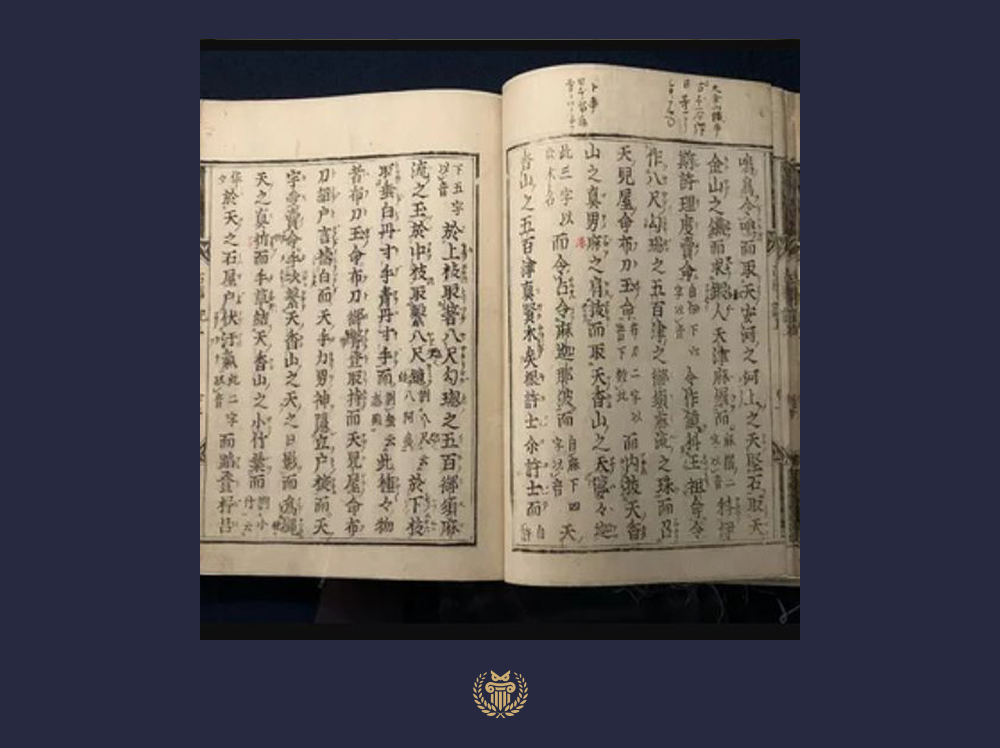 鳴鳥令鳴而取天安河之河上之天堅石取天
金山之鐵而求鍛人天津麻羅而麻羅二字以音科伊
斯許理度賣命自伊下六字以音令作鏡科玉祖命令
作八尺勾璁之五百津之御須麻流之珠而召
天兒屋命布刀玉命布刀二字以音下效此而内拔天香
山之真男鹿之肩拔而取天香山之天
此三字以音木名而令占合麻迦那波而自麻下四字以音天
香山之五百津真賢木矣根許士余許士而自許
下五字以音於上枝取著八尺勾璁之五百御須麻
流之玉於中枝取繫八尺鏡訓八尺云八阿於下枝
取垂白丹寸手青丹寸手而訓垂云此種々物
者布刀玉命布刀御幣登取持而天兒屋命布
刀詔戸言禱白而天手力男神隱立戸掖而天
宇受賣命手次繫天香山之天之日影而為縵
天之真拆而手草結天香山之小竹葉而訓小竹云
於天之石屋戸伏汙氣此二字以音而蹈登杼呂